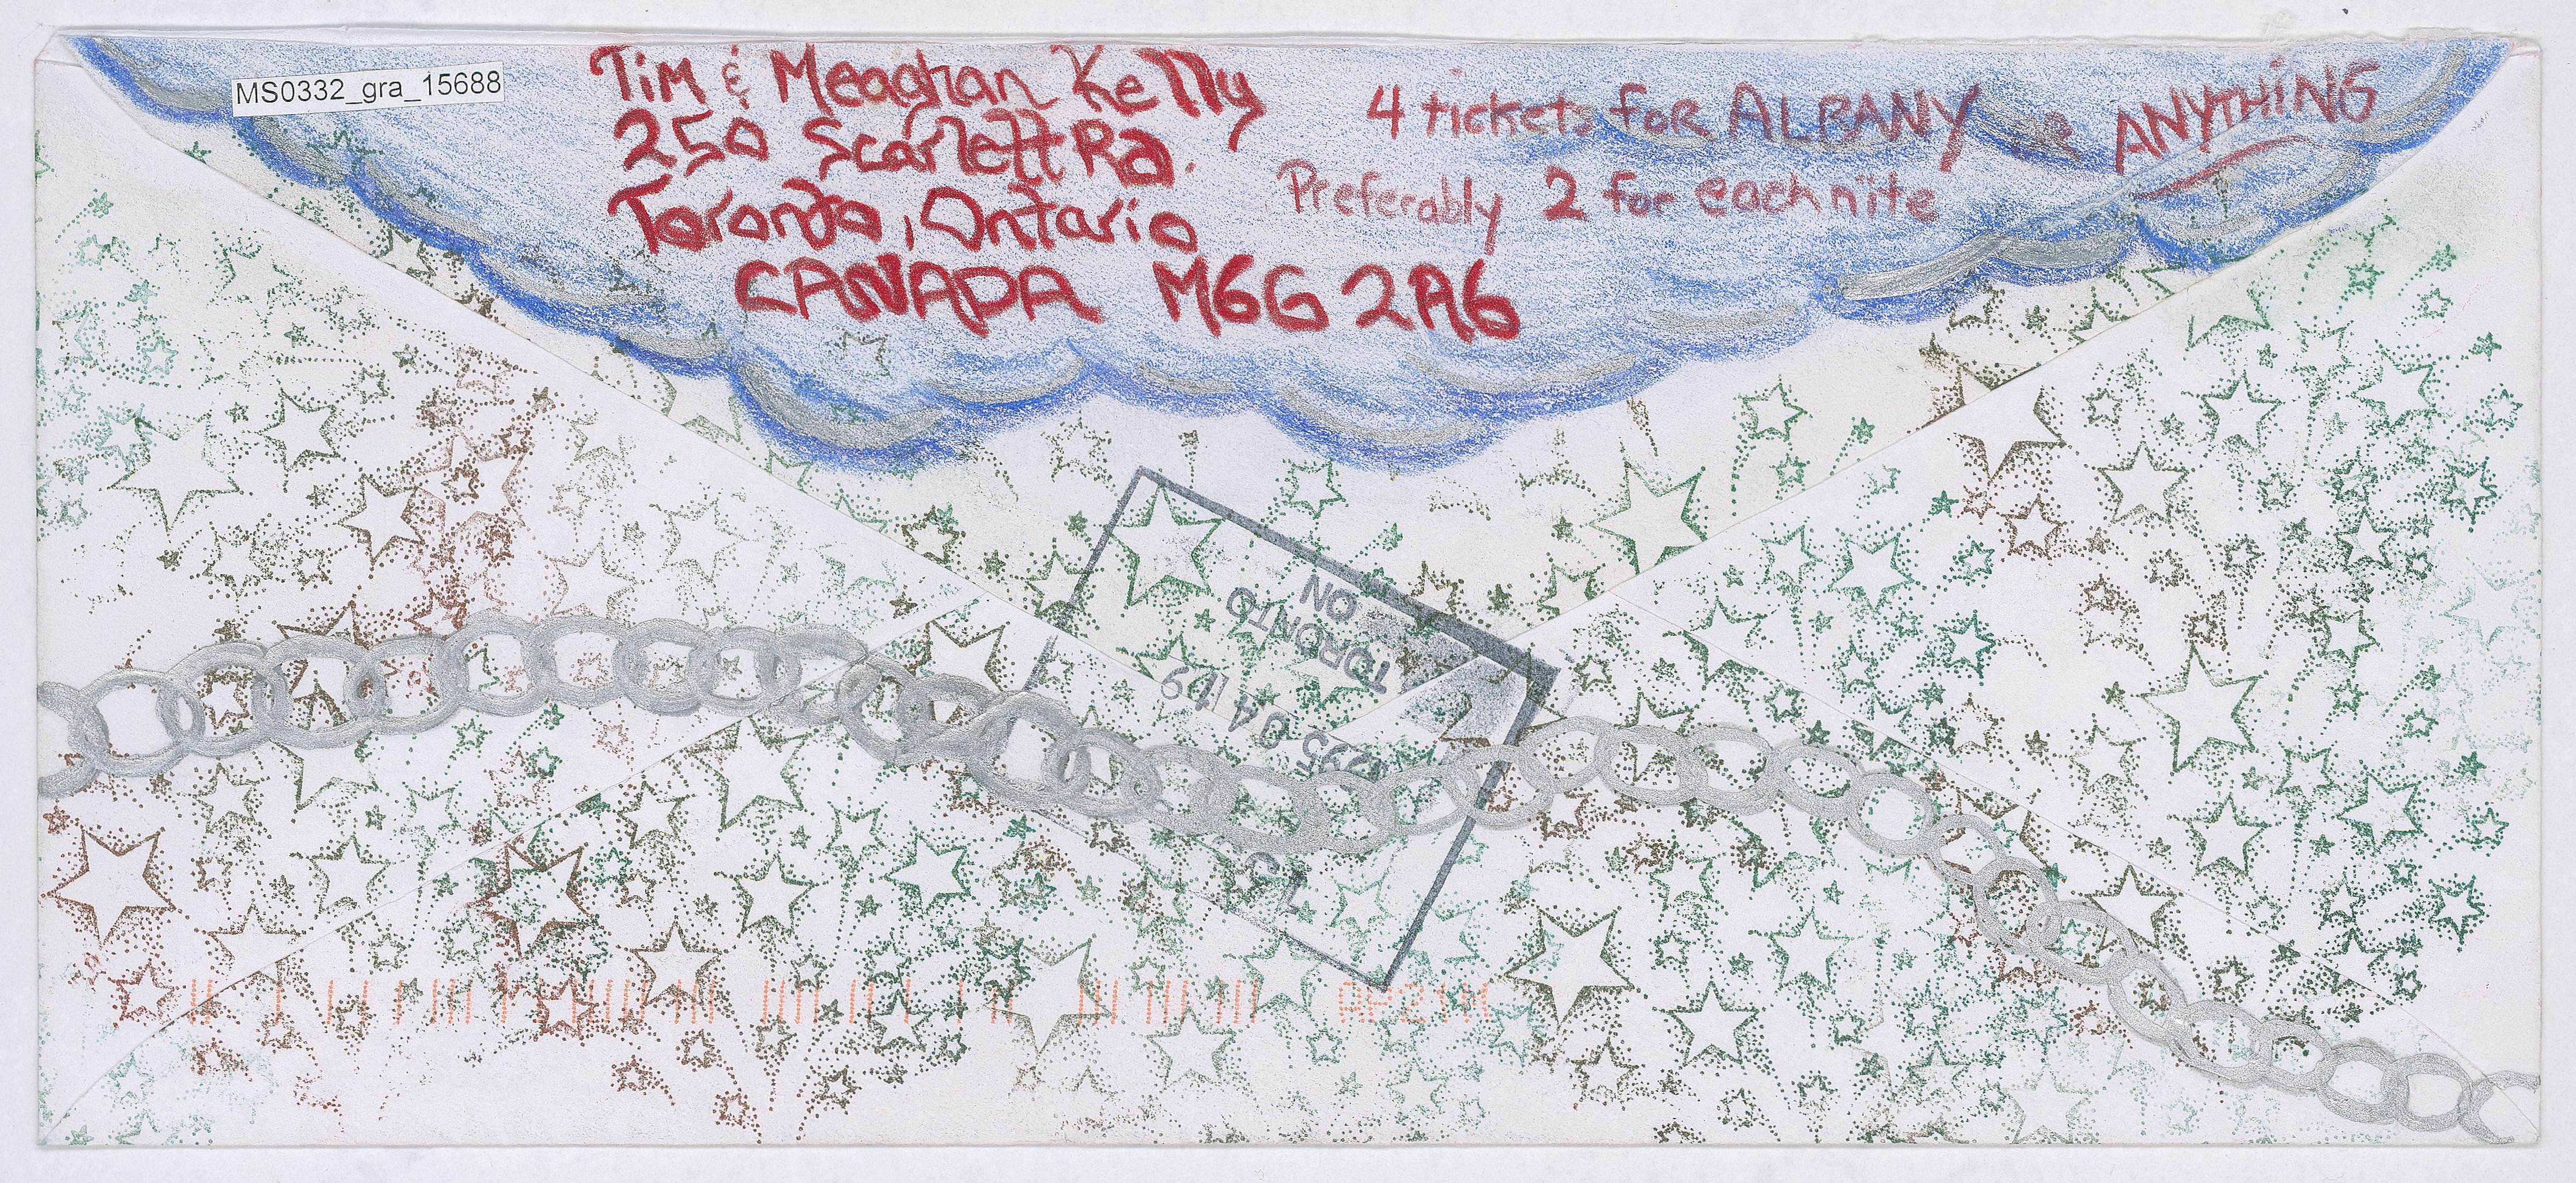 MS0332_gra_15688
Tim & Meaghan Kelly
250 Scarlett Rd.
Toronto, Ontario
CANADA M6G 2A6
4 tickets foR ALBANY or ANYTHING
Preferably 2 for each nite
TORONTO
ON
1995 04 19